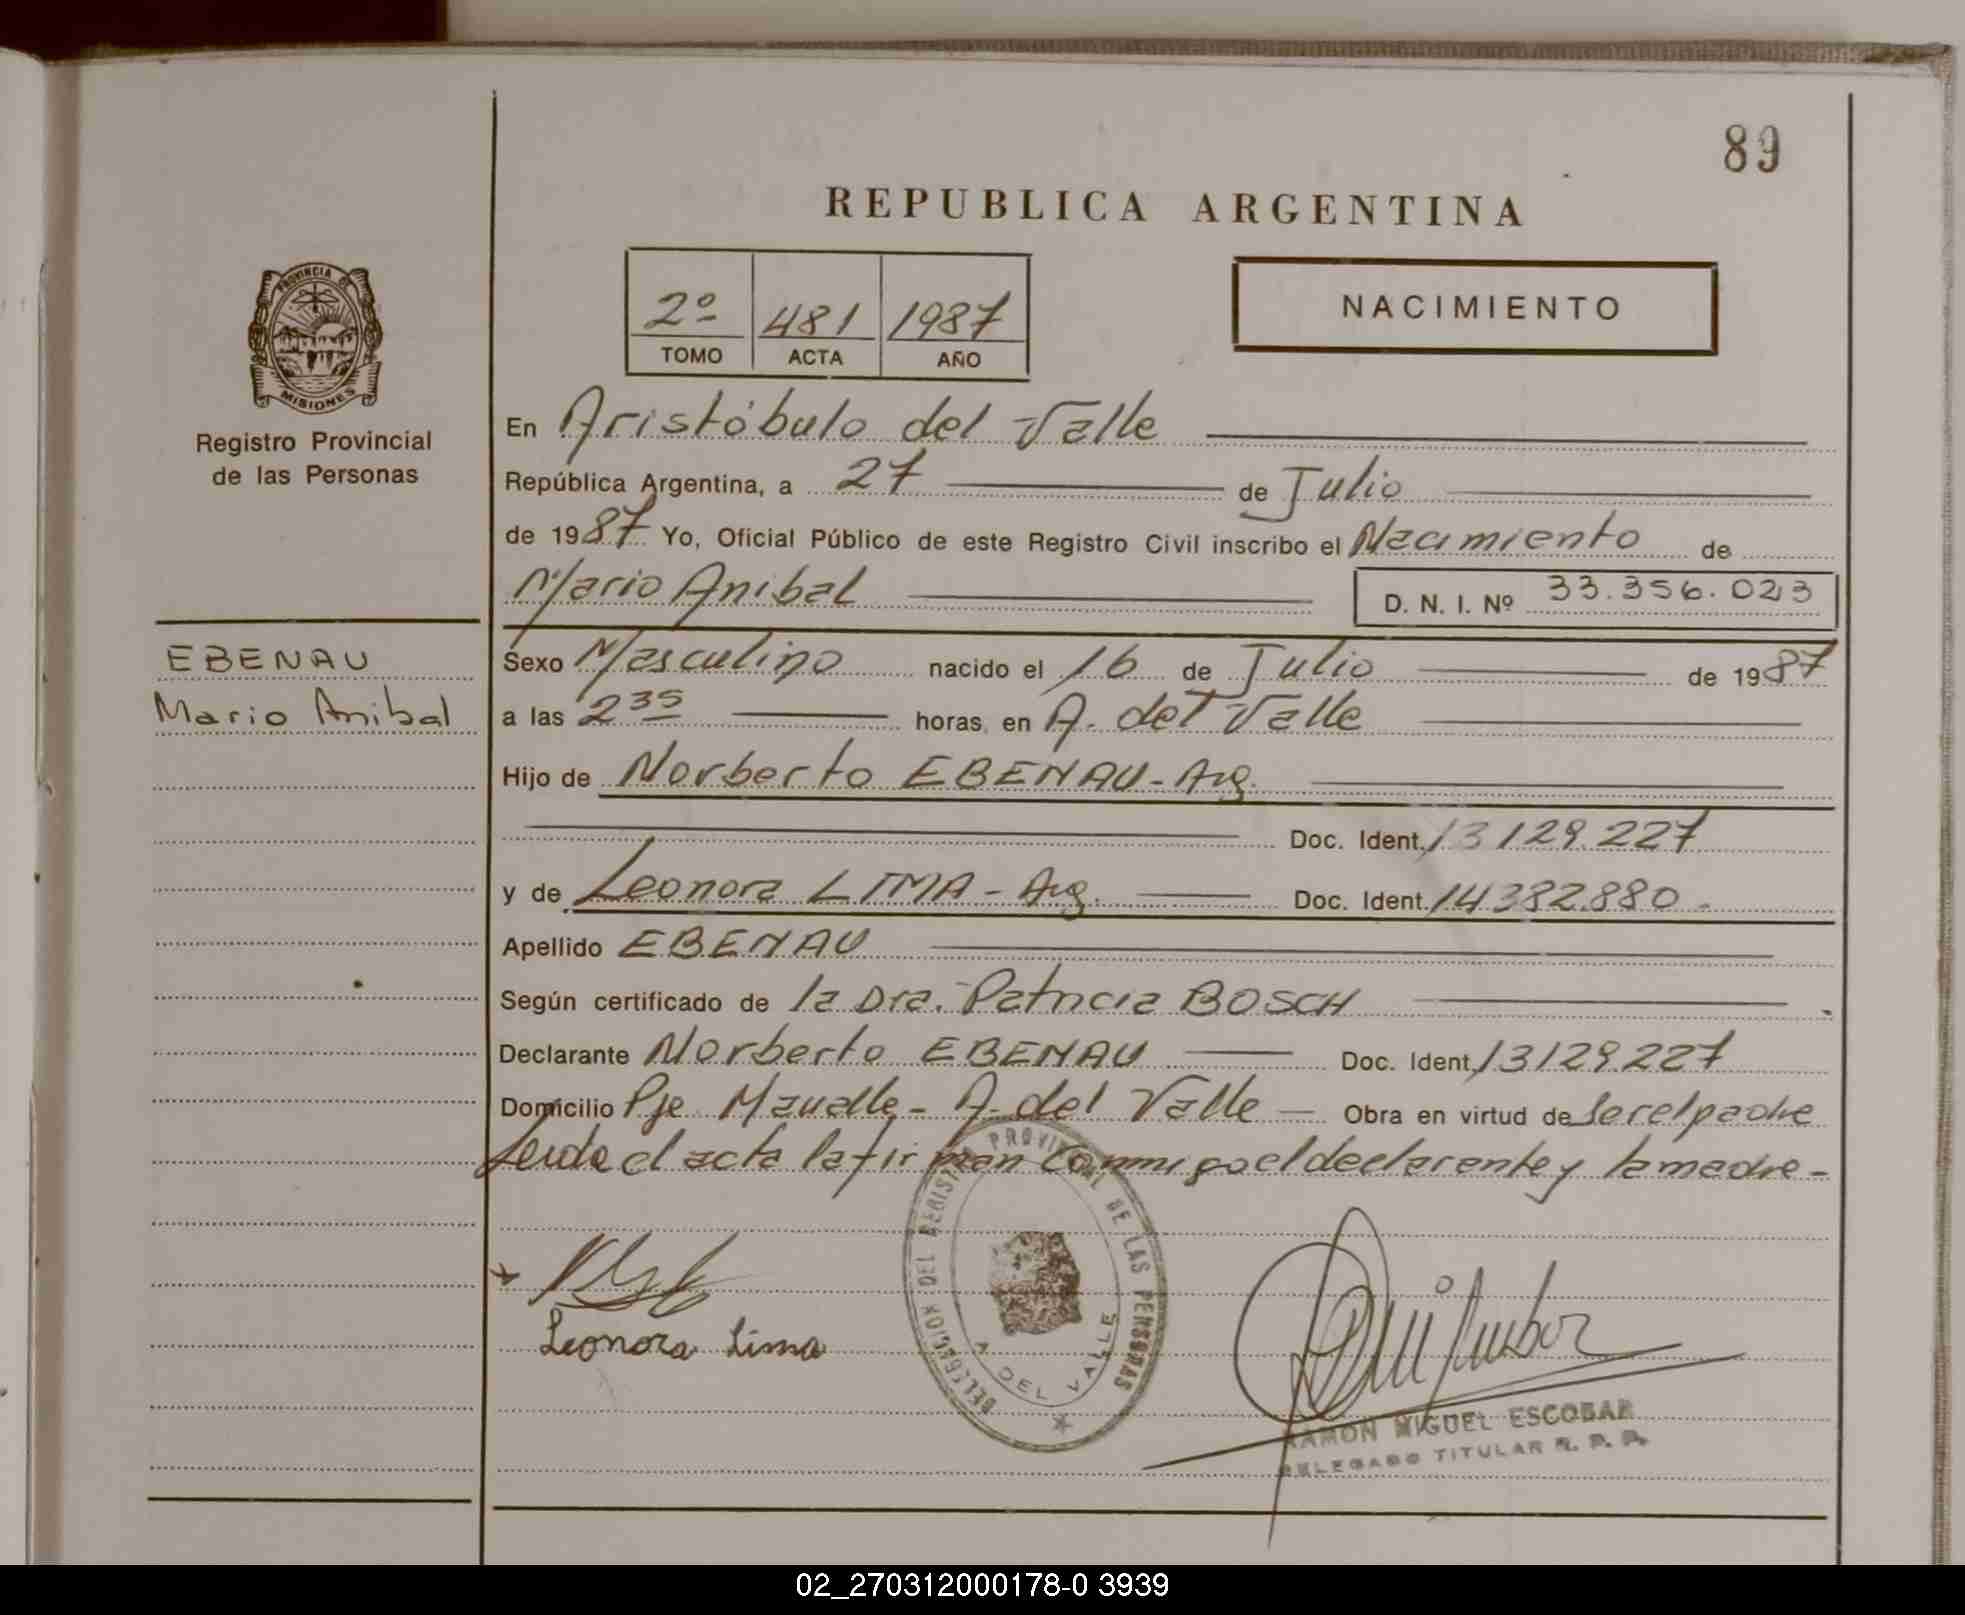 89
REPUBLICA ARGENTINA
2º 481 1987
TOMO ACTA AÑO
NACIMIENTO
PROVINCIA DE
MISIONES
Registro Provincial
de las Personas
EBENAU
Mario Anibal
En Aristóbulo del Valle
República Argentina, a 27 de Julio
de 1987 Yo, Oficial Público de este Registro Civil inscribo el Nacimiento de
Mario Anibal D. N. I. Nº 33.356.023
Sexo Masculino nacido el 16 de Julio de 1987
a las 2 35 horas, en A. del Valle
Hijo de Norberto EBENAU - Arg.
Doc. Ident. 13129.227
y de Leonora LIMA - Arg. Doc. Ident. 14382.880 -
Apellido EBENAU
Según certificado de la Dra. Patricia BOSCH
Declarante Norberto EBENAU Doc. Ident. 13129.227
Domicilio Pje Mavalle - A. del Valle - Obra en virtud de ser el padre
Leida el acta la firman conmigo el declarante y la madre -
Leonora Lima
DELEGACION DEL REGISTRO PROVINCIAL DE LAS PERSONAS
A DEL VALLE
RAMON MIGUEL ESCOBAR
DELEGADO TITULAR R. P. P.
02_270312000178-0 3939